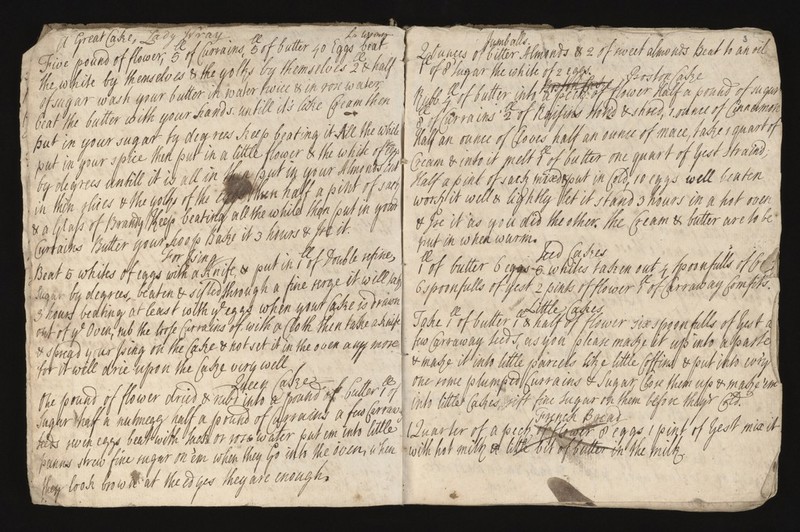 A Great Cake, Lady Wray
Five pound of flower, 5 lb of Currains, 5 lb of butter 40 Eggs beat
the white by themselves & the yolks by themselves 2 lb & half
of sugar wash your butter in water twice & in rose water
beat the butter with your hands. untill its like Cream then
put in your sugar by degrees keep beating it All the while
put in your spice then put in a little flower & the white of Eggs
by degrees untill it is all in put in your Almonds Cut
in thin slices & the yolks of the then half a pint of sack
& a Glass of Brandy keep beating all the while then put in your
Currains Butter your hoop Bake it 3 hours & Ice it.
For Ising
Beat 5 whites of eggs with a knife & put in 1 lb of double refine
sugar by degrees, beaten & sifted through a fine it will
3 hours beating at least with ye eggs when your Cake is drawn
out of ye Oven rub the lose Currains of with a Cloth then take a knife
& spread your Ising on the Cake & not set it in the oven any more
for it will drie upon the Cake very well
Queen Cakes
One pound of flower dried & rub'd into a pound of butter 1 lb of
sugar half a nutmegg half a pound of Carrains a few Carraway
seeds seven eggs beat with sack or rose water put em into little
panns strew fine sugar on 'em when they Go into the oven, when
they look brown at the edges they are enough.
3
Jumballs.
2 ounces of bitter Almonds & 2 of sweet almonds Beat to an oile
1 lb of sugar the white of 2 eggs.
Boston Cake
Rubb of butter into of flower half a pound of sugar
of Corrains 1/2 of Raisins ston'd & shred, 1 ounce of Cinnamon
Half an ounce of Cloves half an ounce of mace, take 1 quart of
Cream & into it melt of butter one quart of Yest Strain'd
Half a pint of sack put in Cold, 10 eggs well beaten
work it well & Lightly let it stand 3 hours in a hot oven
& Ice it as you did the other. the Cream & butter are to be
put in when warm.
Seed Cakes
1 lb of butter 6 eggs 3 whites taken out 4 spoonfulls of
6 spoonfulls of Yest 2 pints of flower of Carraway Comfits.
Little Cakes
Take 1 lb of butter & half of flower six spoonfulls of Yest a
few Carraway seeds, as you please make it up into a paste
& make it into little parcels like little Coffins & put into every
one some plumped Currains & Sugar Close them up & make 'em
into little Cakes sift fine sugar on them before they'r Cold.
French Bread
1 Quarter of a peck of flower 8 eggs 1 pint of Yest mix it
with hot milk & little bit of butter in the milk